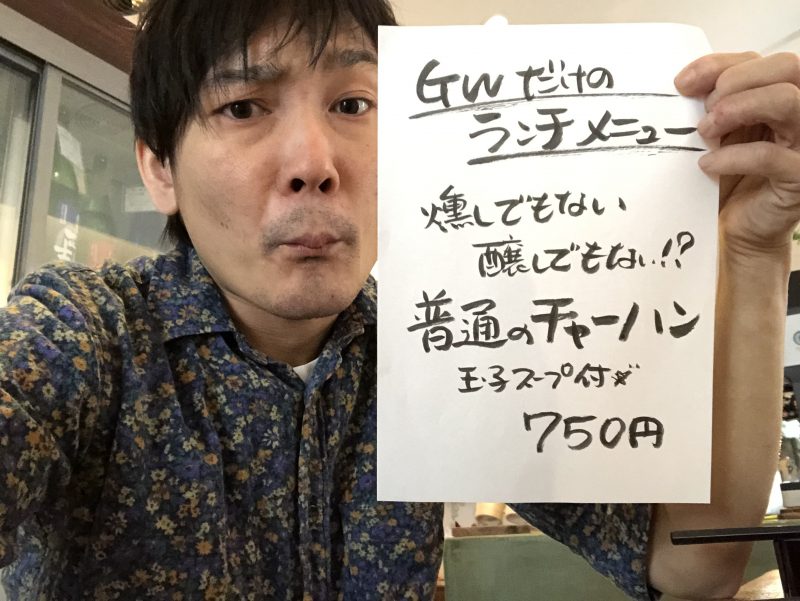 GWだけの
ランチメニュー
燻しでもない
醸しでもない!?
普通のチャーハン
玉子スープ付
750円